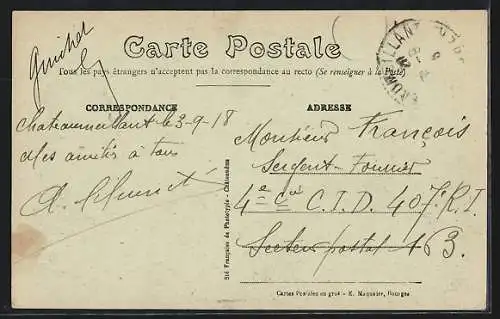 Guichet
Carte Postale
Tous les pays étrangers n'acceptent pas la correspondance au recto (Se renseigner à la Poste)
CORRESPONDANCE
Chateaumeillant le 3-9-18
Mes amitiés à tous
ADRESSE
Monsieur François
Sergent-Fourrier
4e Cie C.I.D. 407.R.I.
Secteur postal 163.
Sté Française de Phototypie - Châteaudun
Cartes Postales en gros - E. Maquaire, Bourges